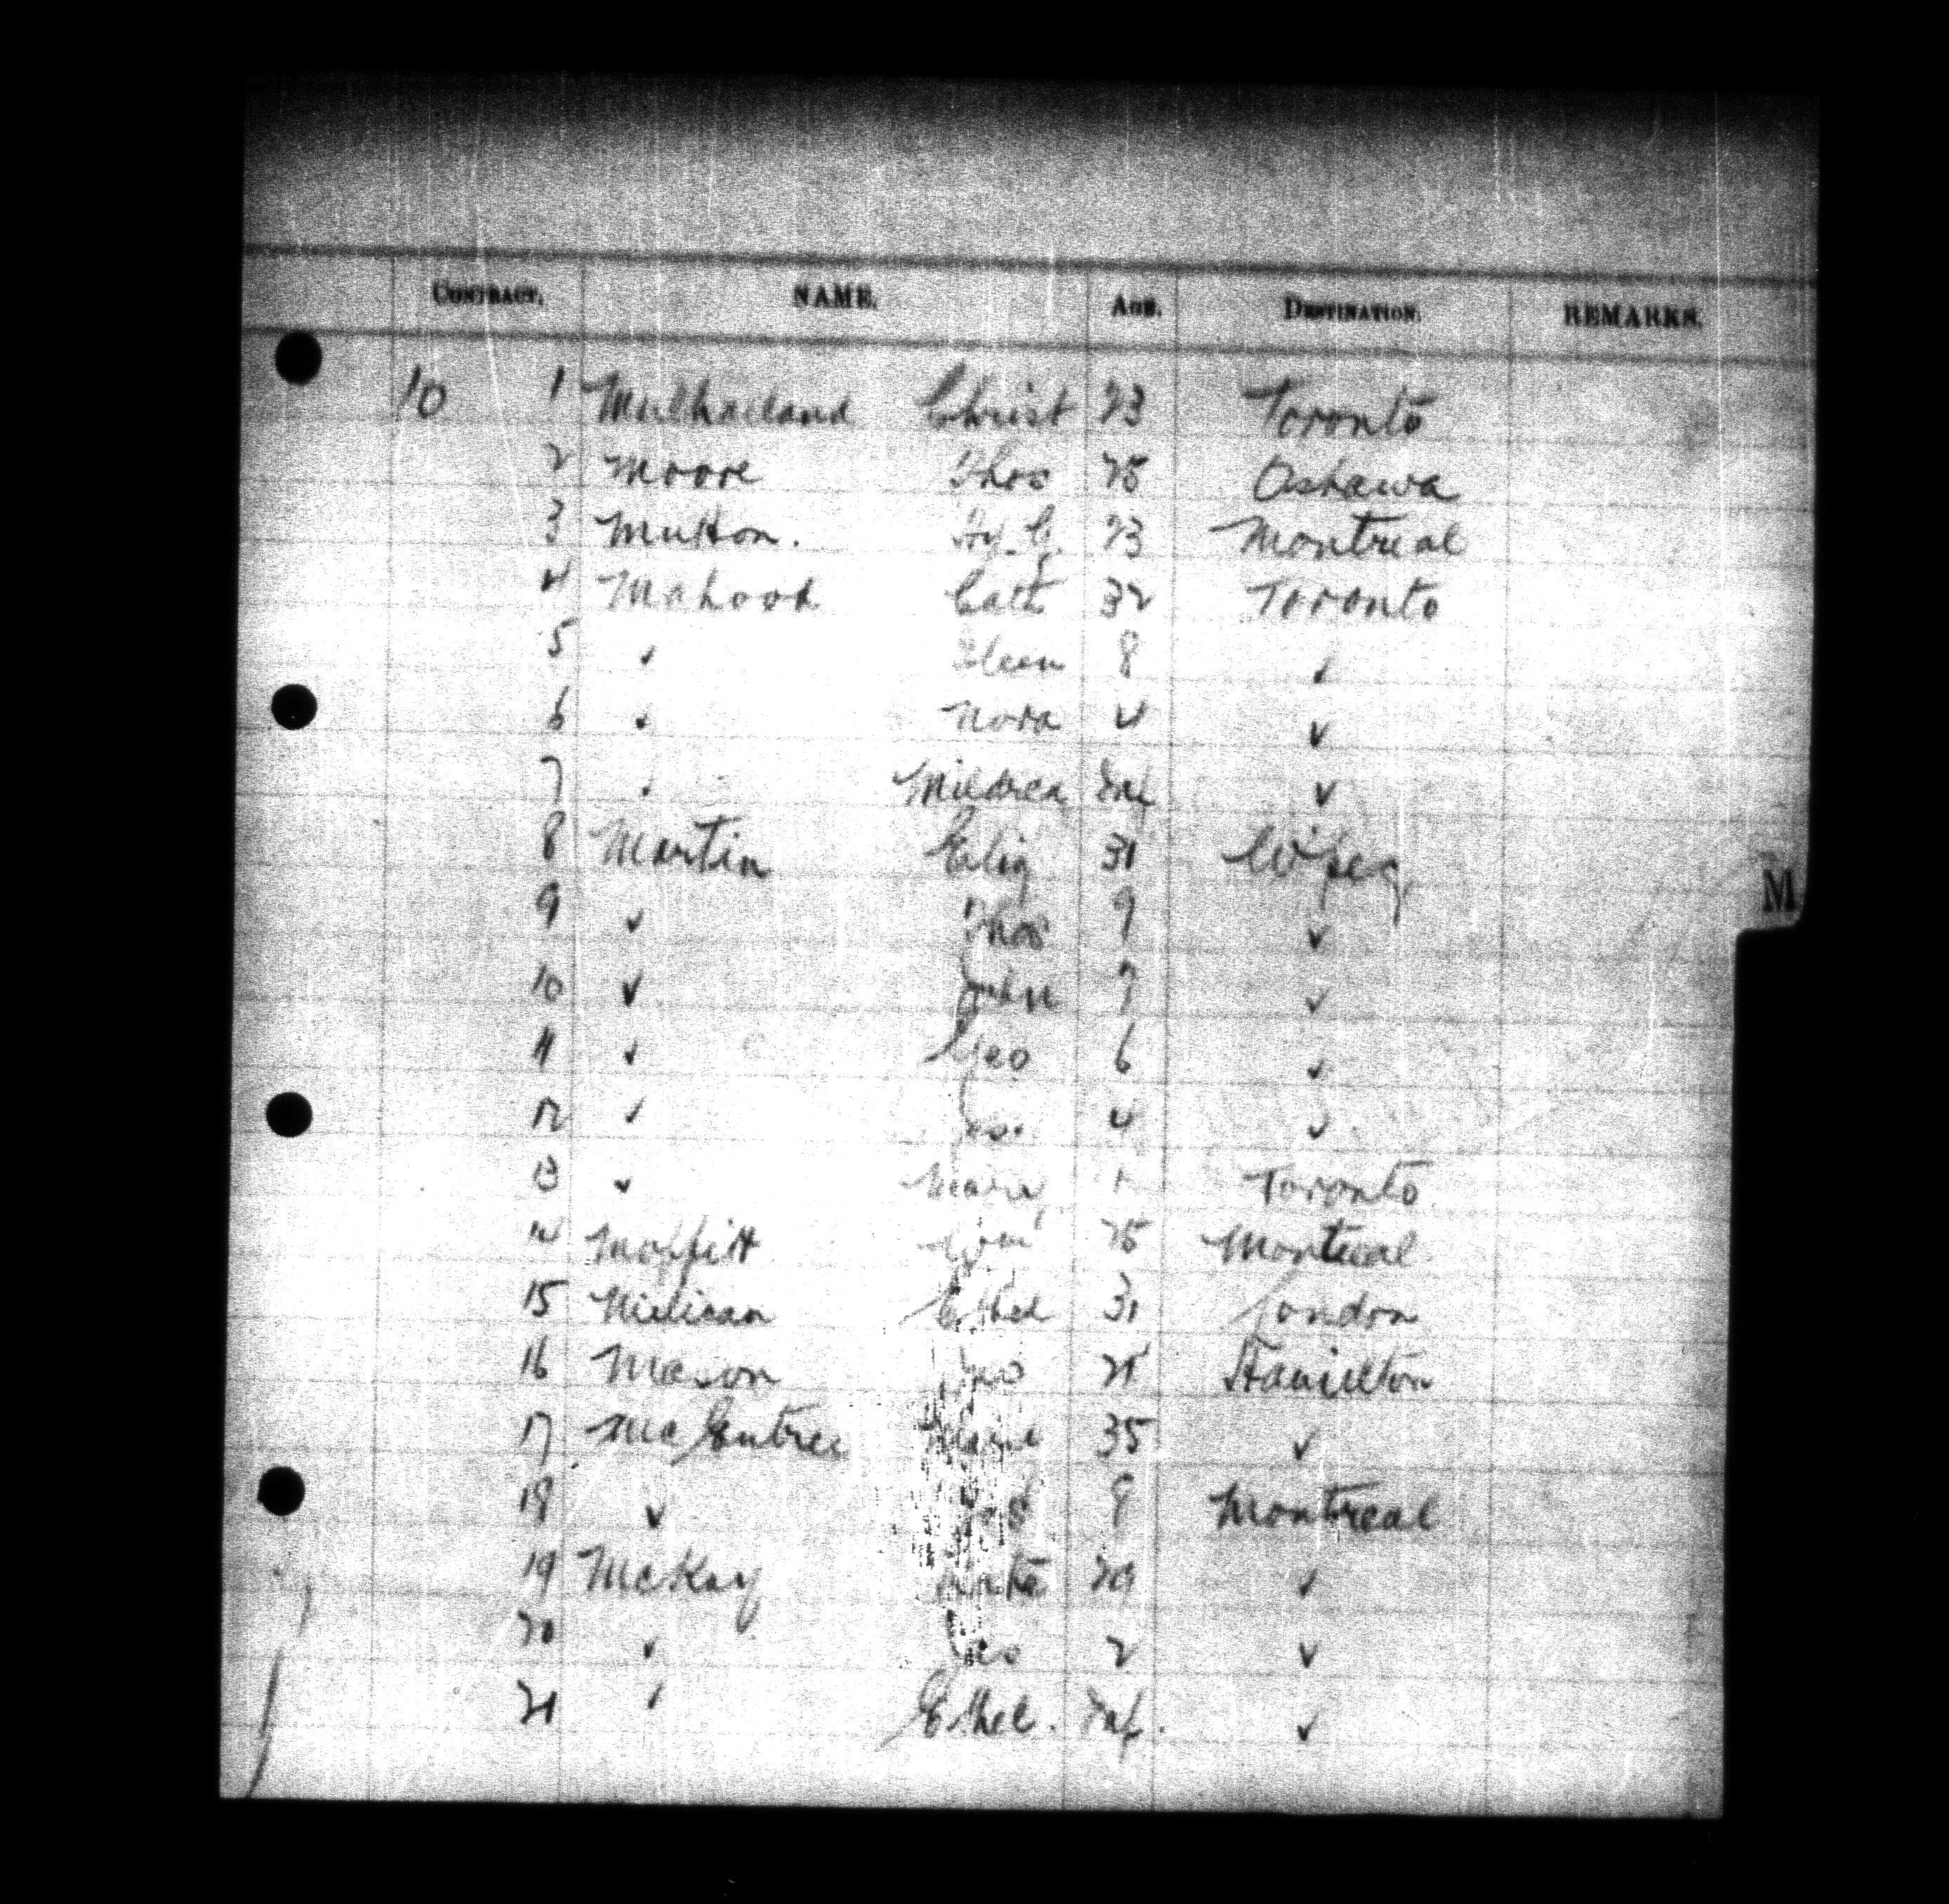 CONTRACT. NAME. AGE. DESTINATION. REMARKS.
10 1 Mulholland Christ 23 Toronto
2 Moore Thos 25 Oshawa
3 Mutton. Hy. G. 23 Montreal
4 Mahood Cath 32 Toronto
5 ✓ Eleen 8 ✓
6 ✓ Nora 4 ✓
7 ✓ Mildred Inf ✓
8 Martin Eliz 31 W'peg
M
9 ✓ Thos 9 ✓
10 ✓ John 7 ✓
11 ✓ Geo 6 ✓
12 ✓ Jas. 4 ✓
13 ✓ Mary 1 Toronto
14 Moffitt Wm 25 Montreal
15 Milican Ethel 31 London
16 Mason Jno 21 Hamilton
17 McEntree 35 ✓
18 ✓ Jos 9 Montreal
19 McKay 29 ✓
20 ✓ Geo 2 ✓
21 ✓ Ethel. Inf. ✓